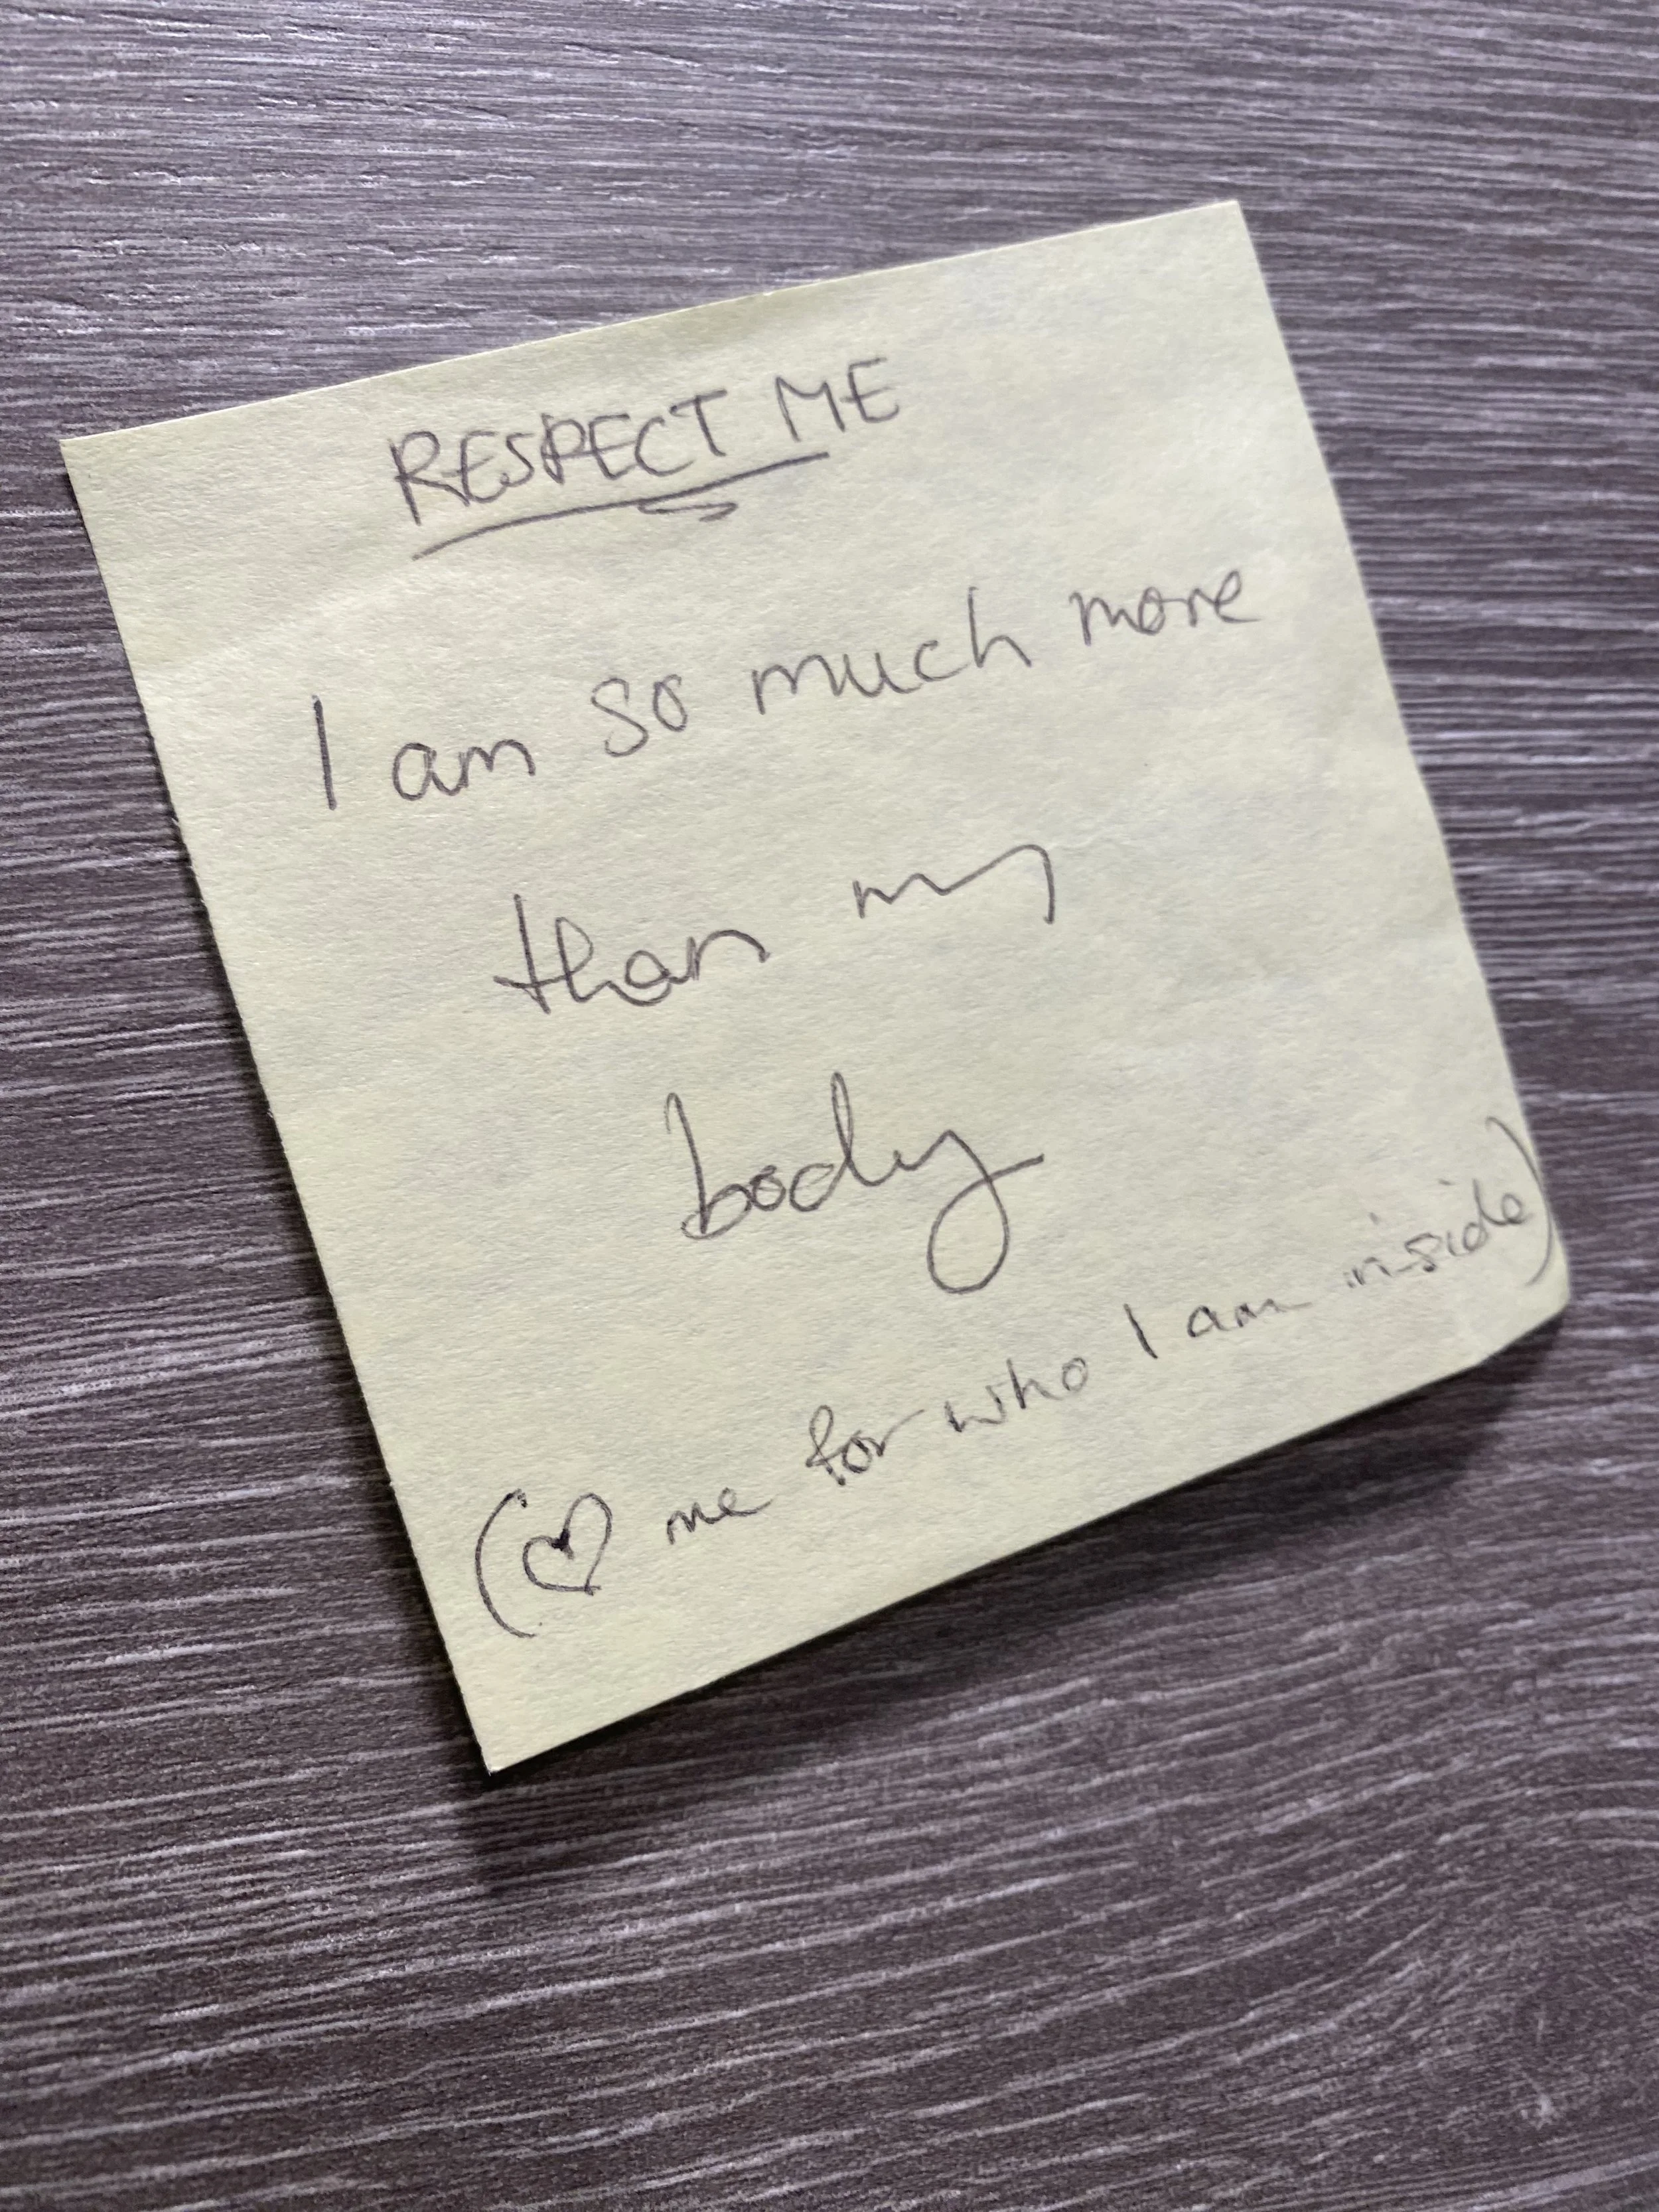 RESPECT ME
I am so much more
than my
body
(♡ me for who I am inside)